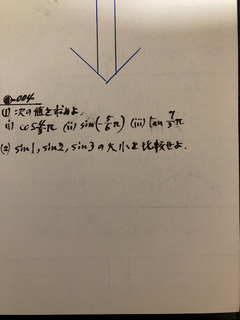 -004
(1) 次の値を求めよ.
(i) cos 4/3 π (ii) sin(-5/6 π) (iii) tan 7/3 π
(2) sin1, sin2, sin3 の大小を比較せよ.